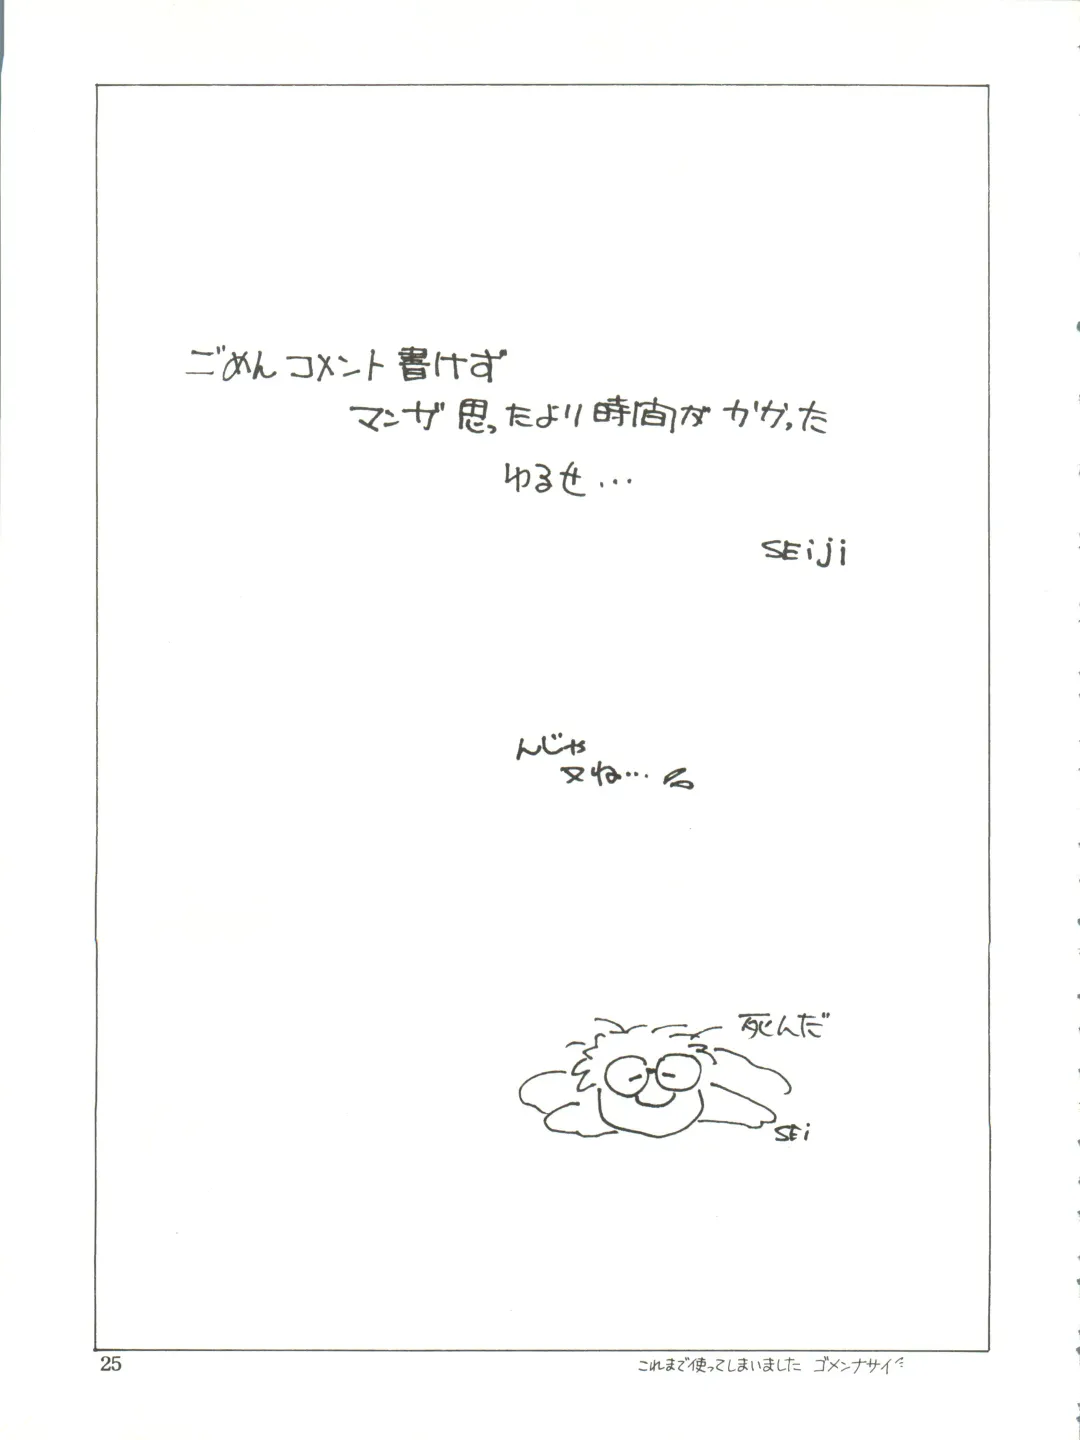 ごめんコメント書けず
マンガ思ったより時間がかかった
ゆるせ…
SEiji
んじゃ
又ね…
死んだ
SEi
25
これまで使ってしまいました ゴメンナサイ